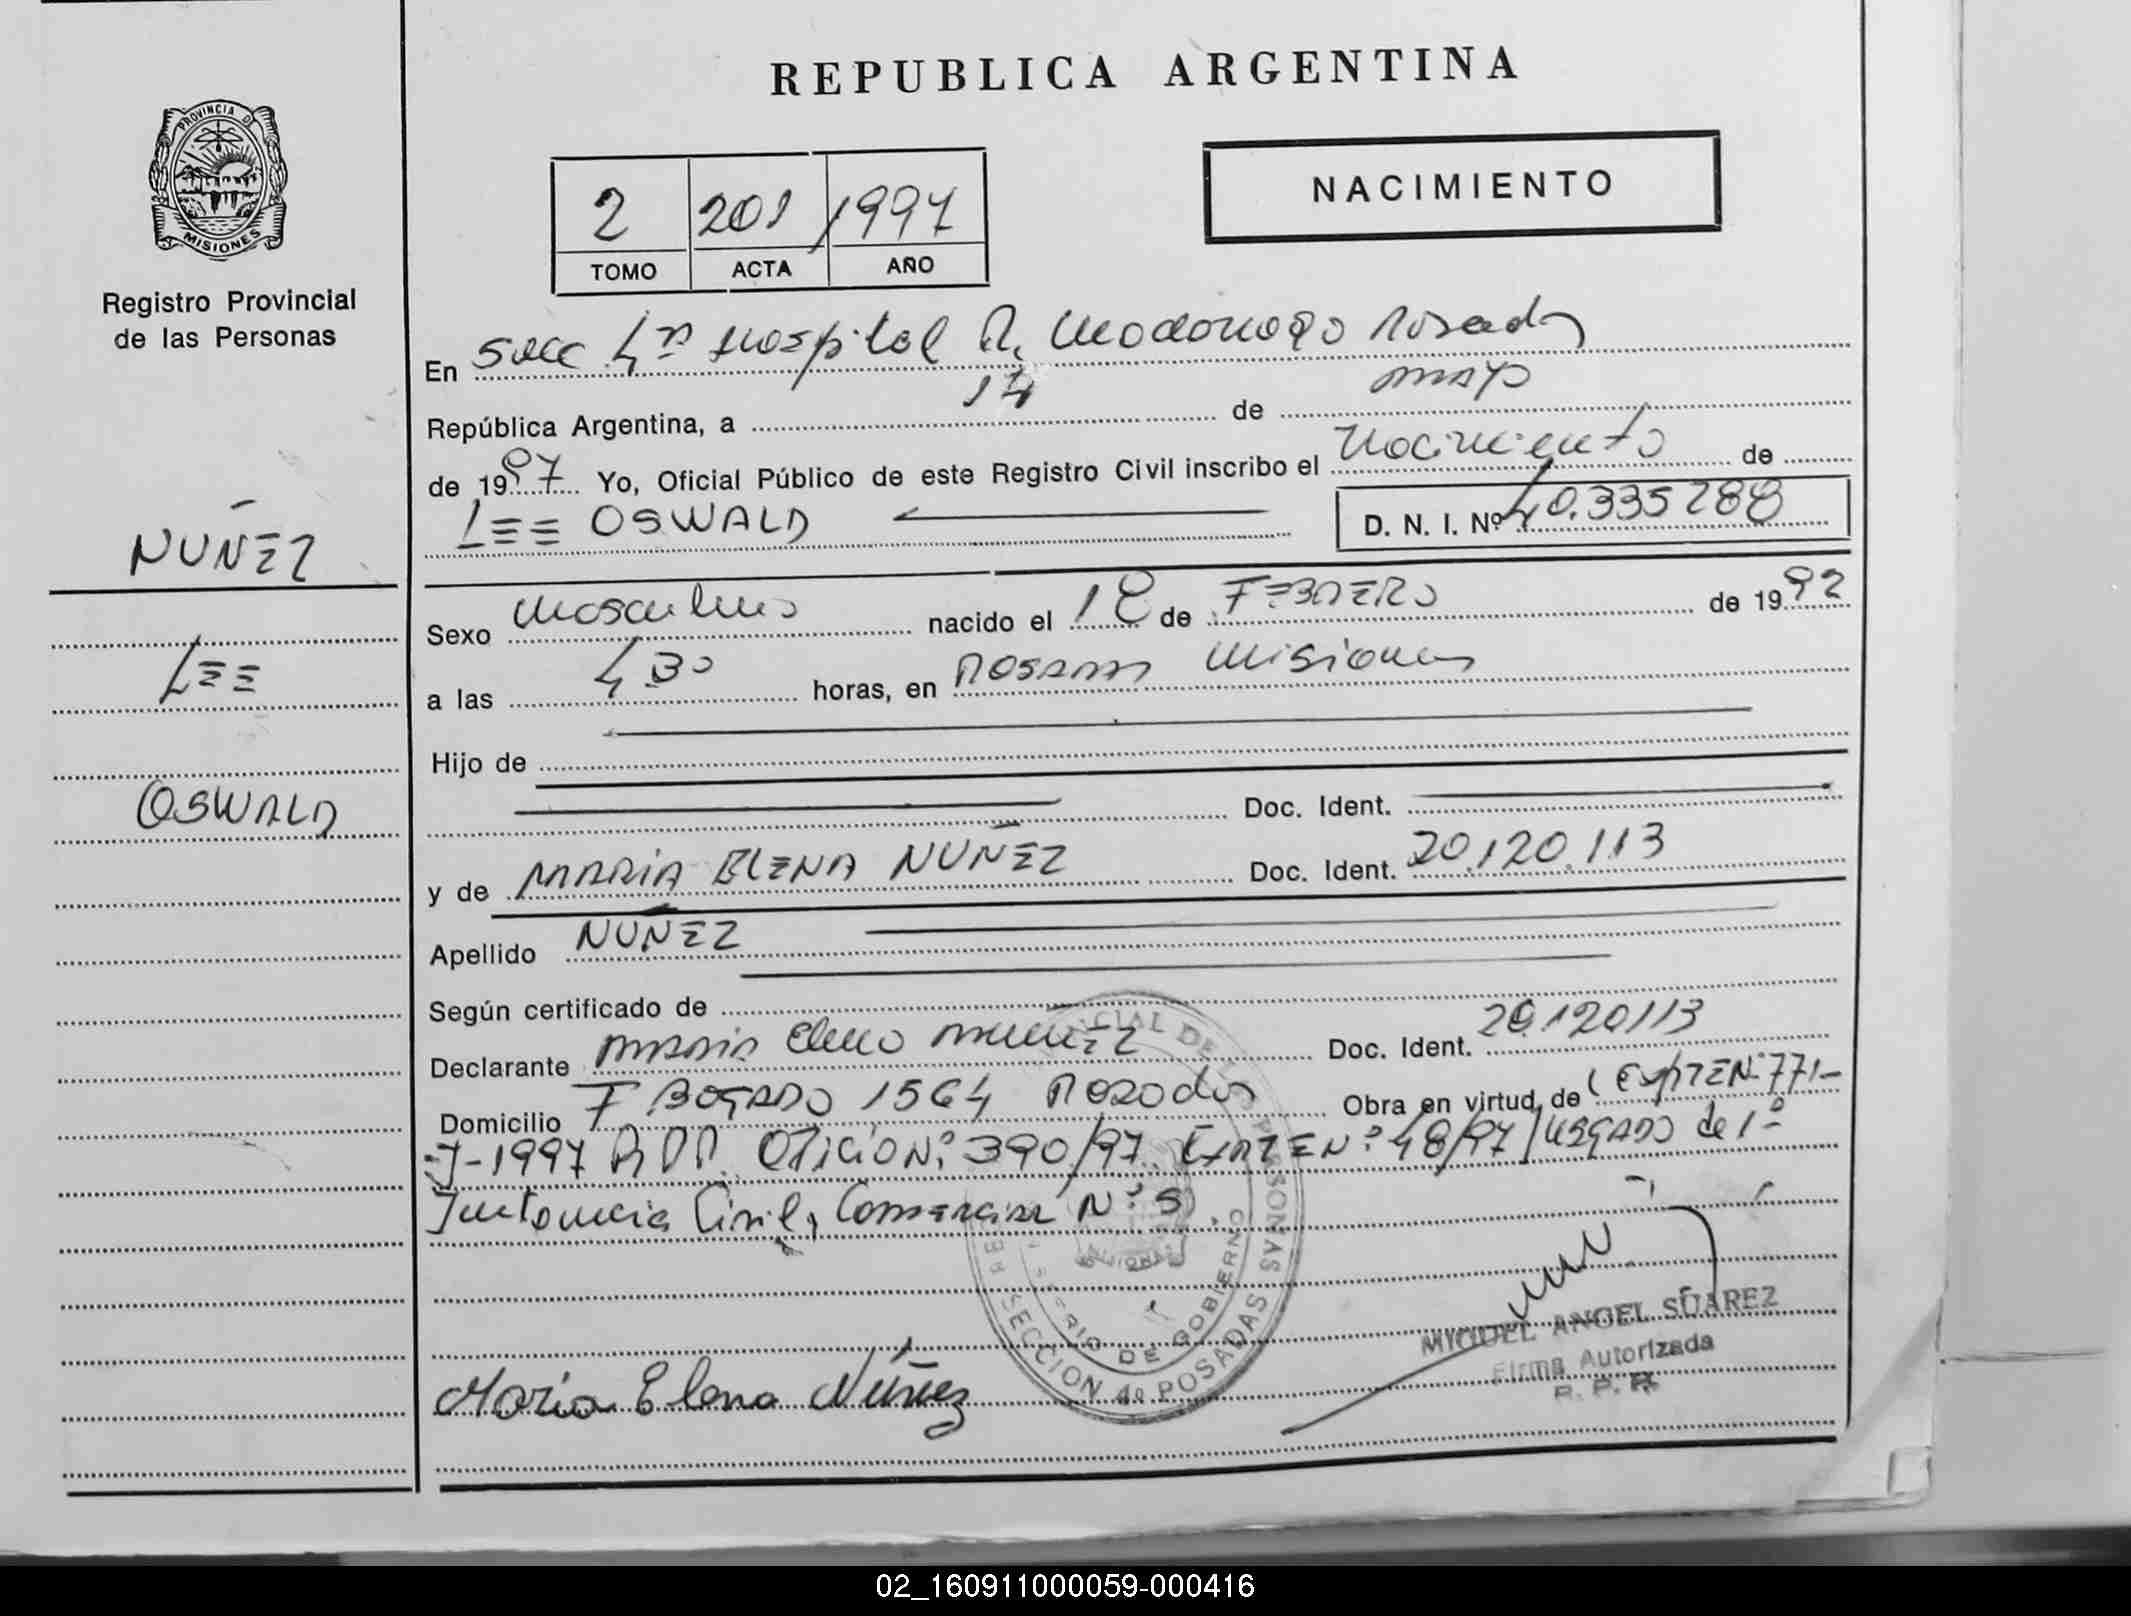 REPUBLICA ARGENTINA
PROVINCIA DE
MISIONES
Registro Provincial
de las Personas
2 201 1997
TOMO ACTA AÑO
NACIMIENTO
En Secc 4ª Hospital R. Madariaga Posadas
República Argentina, a 14 de mayo
de 1997 Yo, Oficial Público de este Registro Civil inscribo el Nacimiento de
LEE OSWALD
D. N. I. Nº 40.335288
NUÑEZ
LEE
OSWALD
Sexo Masculino nacido el 18 de FEBRERO de 1992
a las 4 30 horas, en POSADAS Misiones
Hijo de
Doc. Ident.
y de MARIA ELENA NUÑEZ Doc. Ident. 20.120.113
Apellido NUÑEZ
Según certificado de
Declarante MARIA Elena NUÑEZ Doc. Ident. 20.120113
Domicilio F BOGADO 1564 Posadas Obra en virtud de (EXPTE Nº 771-
-J-1997 R.P.P. OFICIO Nº 390/97 EXPTE Nº 48/97 JUZGADO de 1º
Instancia Civil, Comercial Nº 5
MIGUEL ANGEL SUAREZ
Firma Autorizada
R. P. P.
María Elena Núñez
DE GOBIERNO
SECCION 4a POSADAS
02_160911000059-000416